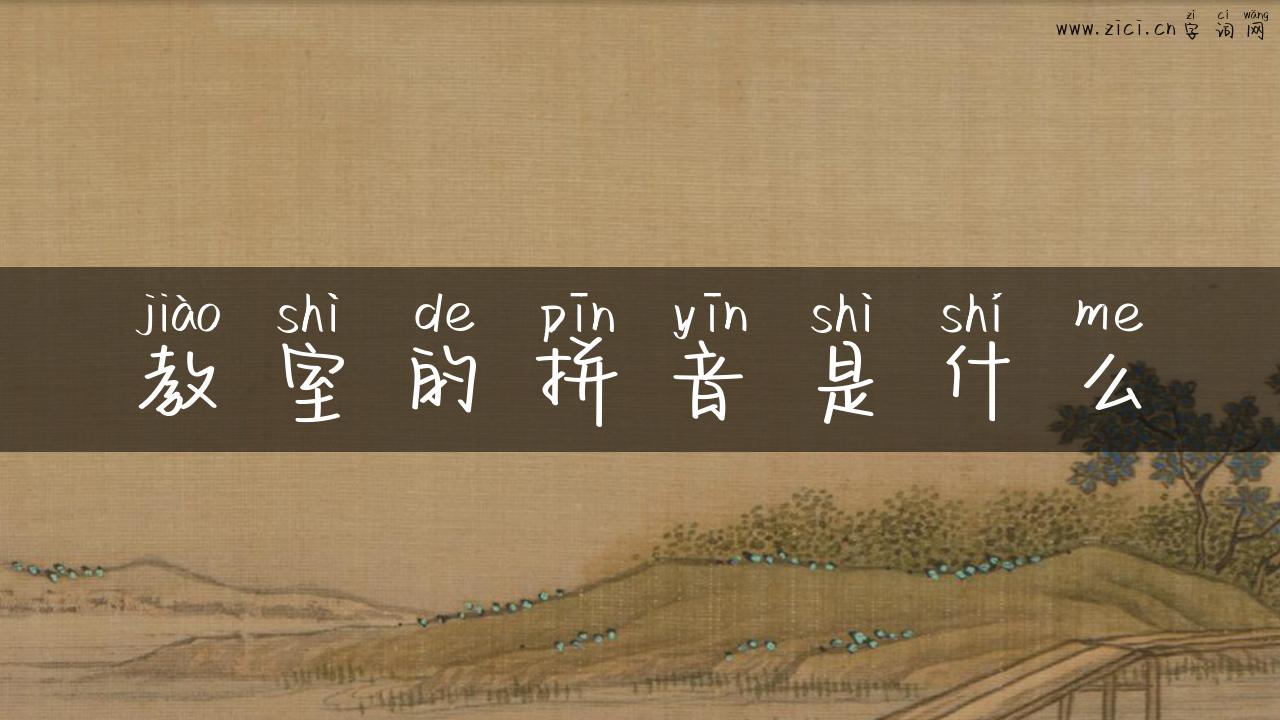 zì cí wǎng
www.zici.cn 字 词 网
jiào shì de pīn yīn shì shí me
教 室 的 拼 音 是 什 么